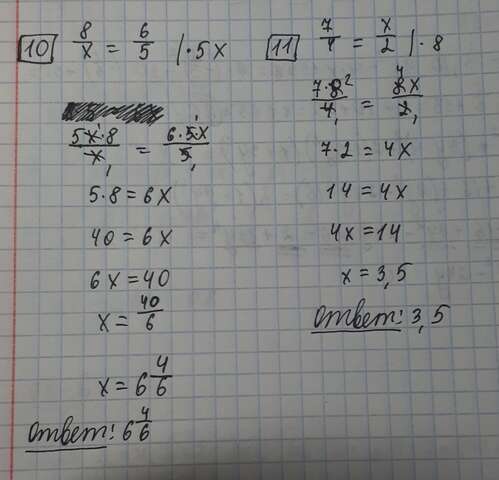 10 8/x = 6/5 | · 5x
5x·8/x = 6·5x/5
5·8 = 6x
40 = 6x
6x = 40
x = 40/6
x = 6 4/6
Ответ: 6 4/6
11 7/4 = x/2 | · 8
7·8²/4 = 8x/2
7·2 = 4x
14 = 4x
4x = 14
x = 3,5
Ответ: 3,5